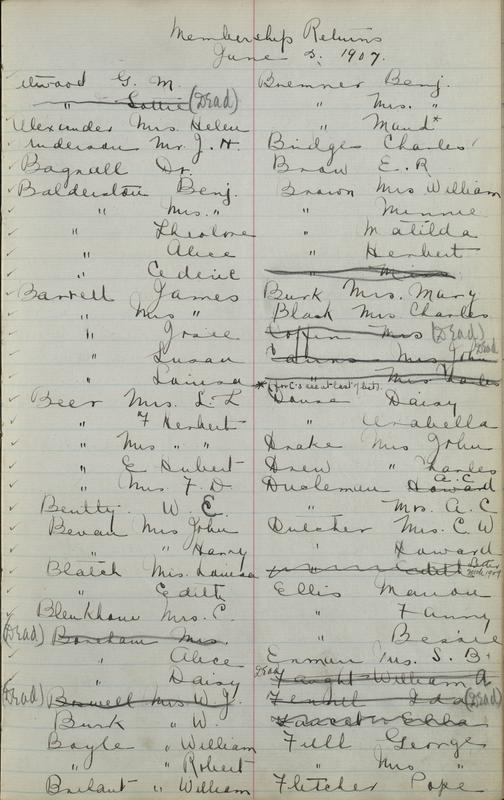 Membership Returns
June 3. 1907.
Atwood G. M.
" Lottie (Dead)
Alexander Mrs. Helen
Anderson Mr. J. H.
Bagnall Dr.
Balderston Benj.
" Mrs. "
" Theolore
" Alice
" Cedric
Barrett James
" Mrs "
" Grace
" Susan
" Louisa
Beer Mrs. L. L
" F Herbert
" Mrs " "
" E Hubert
" Mrs. F. D.
Beutty. W. E.
Bevan Mrs John
" " Harry
Blatch Mrs. Louisa
" Edith
Blenkhorn Mrs. C.
(Dead) Boreham Mrs.
" Alice
" Daisy
(Dead) Boswell Mrs W J.
Burk " W.
Boyle " William
" " Robert
" William
Bremner Benj.
" Mrs. "
" Maud*
Bridges Charles
Brow E. R
Brown Mrs William
" Minnie
" Matilda
" Herbert
"
Burk Mrs. Mary
Black Mrs Charles
Coffin Mrs (Dead)
Mrs John Dead
" Mrs Charles
*(for C's see at last of list).
Daisy
" Arabella
Drake Mrs John
Drew " Charles
Duchemin Howard A. C.
" Mrs. A. C
Dutcher Mrs. C. W
" Howard
" Edith
Ellis Marion
" Fanny
" Bessie
Enman Mrs. S. B.
Dead Faught William A
Fennell Ida (Dead)
Ella
Full George
" Mrs "
Fletcher Pope